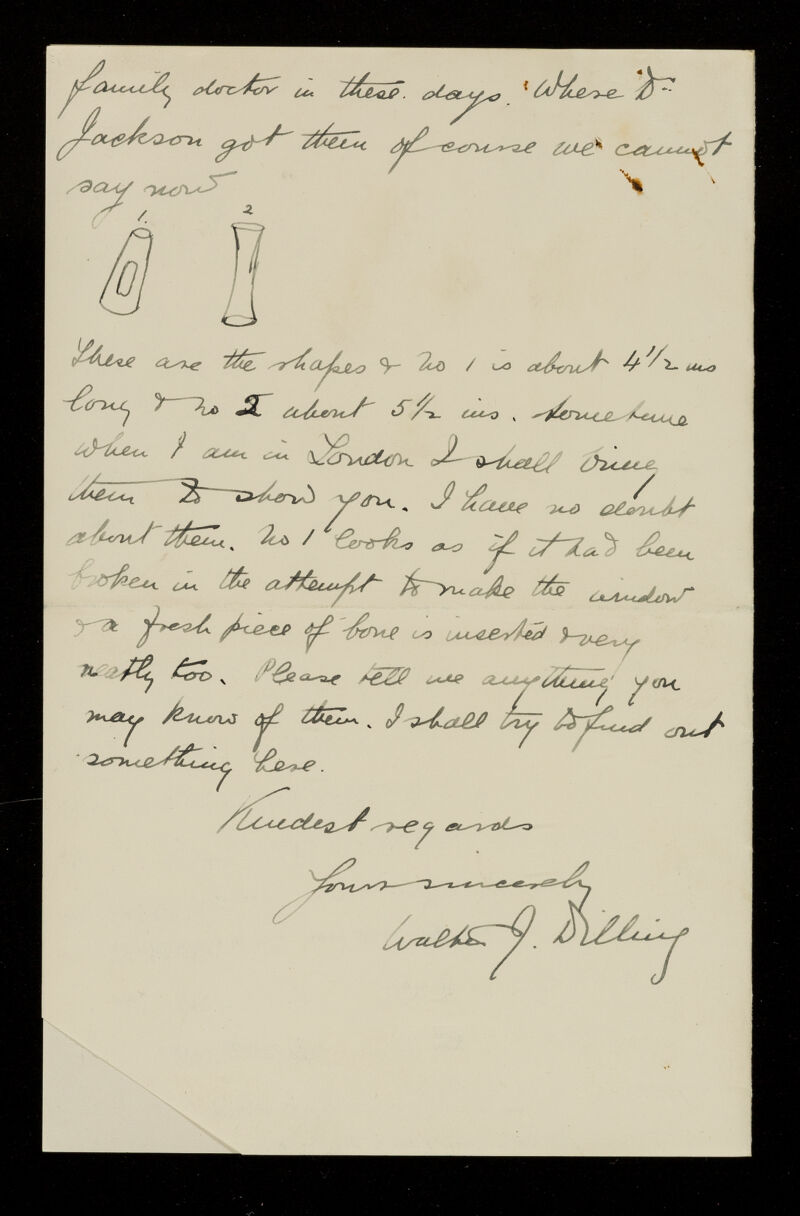 family doctor in these days. Where Dr.
Jackson got them of course we cannot
say now
1. 2
These are the shapes & No 1 is about 4 1/2 ins
long & No 2 about 5 1/2 ins. Sometime
when I am in London I shall bring
them to show you. I have no doubt
about them. No 1 looks as if it had been
broken in the attempt to make the window
& a fresh piece of bone is inserted & very
neatly too. Please tell me anything you
may know of them. I shall try to find out
something here.
Kindest regards
Yours sincerely
Walter J. Dilling